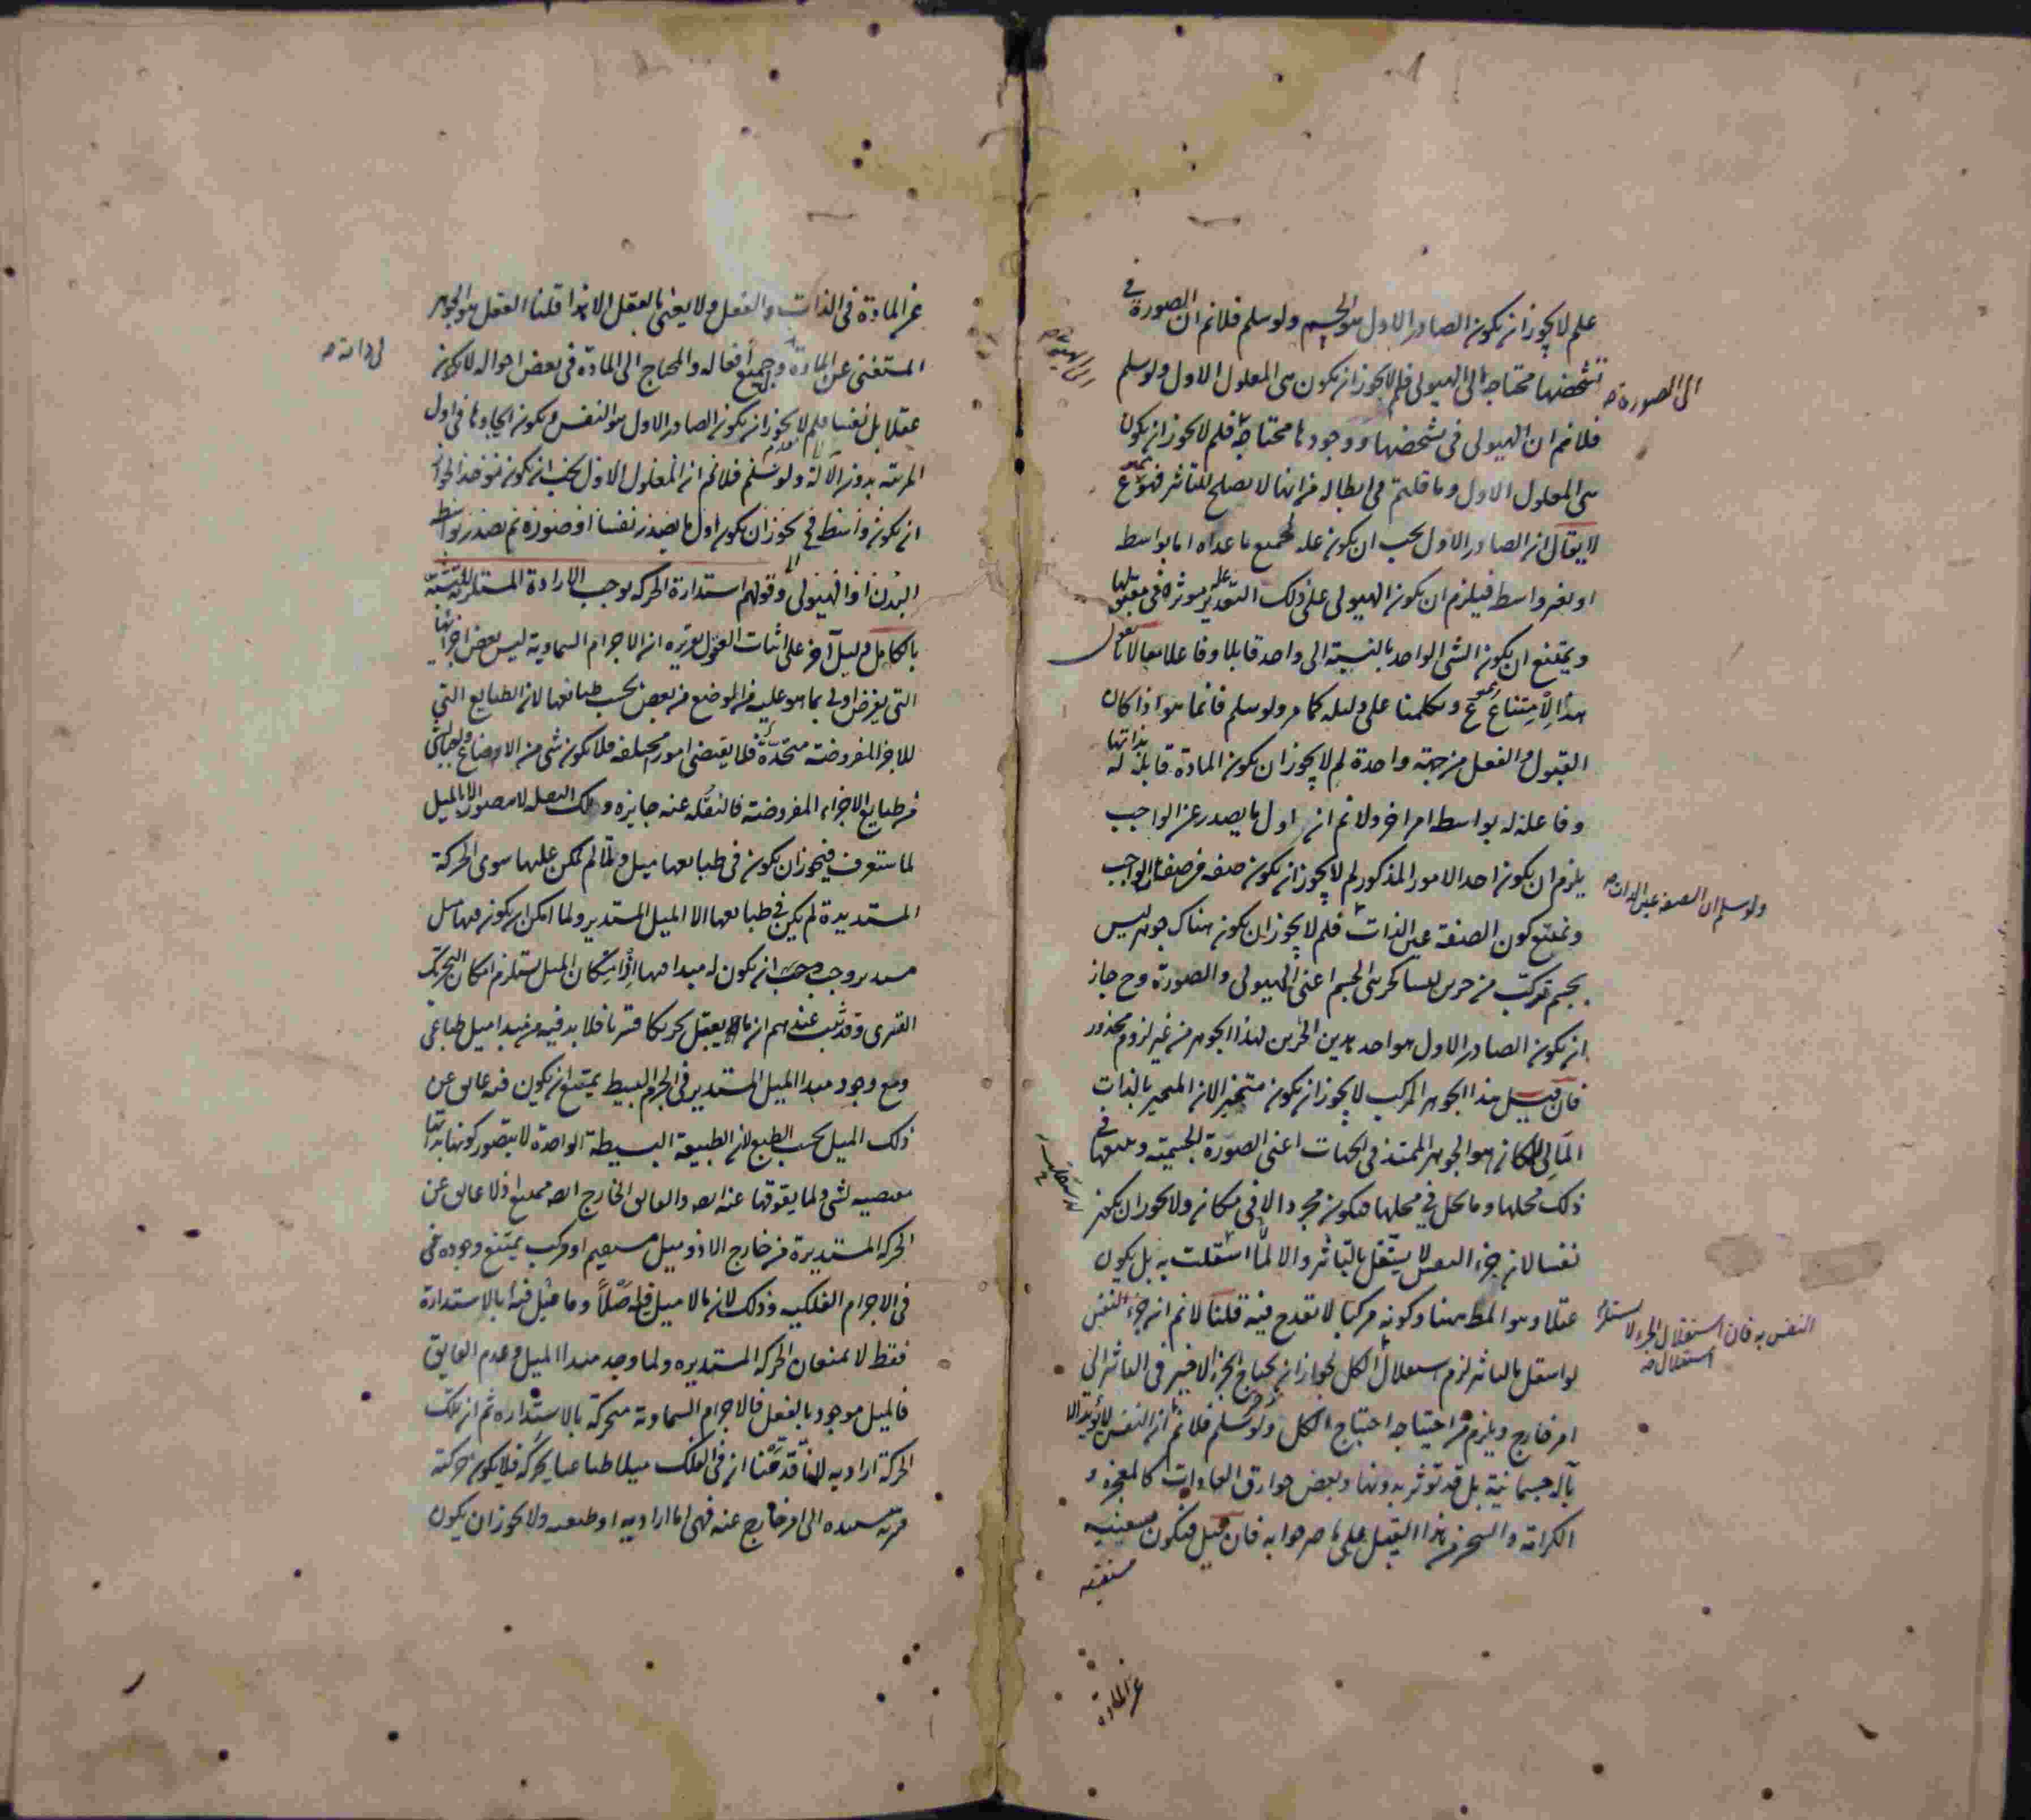 علم لا يجوز ان يكون الصادر الاول هو الجسم ولو سلم فلانم ان الصورة في
تشخصها محتاجة الى الهيولى فلم لا يجوز ان يكون هى المعلول الاول ولو سلم
الى الصورة صح
فلانم ان الهيولى في تشخصها ووجودها محتاجة فلم لا يجوز ان يكون
هى المعلول الاول وما قلتم في ابطاله من انها لا يصلح للتاثير فهو مم
لا يقال ان الصادر الاول يجب ان يكون علة لجميع ما عداه اما بواسطة
او بغير واسطة فيلزم ان يكون الهيولى على ذلك التقدير مؤثرة في
ويمتنع ان يكون الشى الواحد بالنسبة الى واحد قابلا وفاعلا معا لانا نقول
هذا الامتناع مم وتكلمنا على دليله كما مر ولو سلم فانما هو اذا كان
القبول والفعل من جهة واحدة لم لا يجوز ان يكون المادة قابلة له بذاتها
وفاعلة له بواسطة امر اخر ولانم ان اول ما يصدر عن الواجب
يلزم ان يكون احد الامور المذكور لم لا يجوز ان يكون صفة من صفات الواجب
ونمنع كون الصفة عين الذات فلم لا يجوز ان يكون هناك جوهر ليس
ولو سلم ان الصفة عين الذات صح
بجسم مركب من جزين ليسا كجزئى الجسم اعنى الهيولى والصورة وح جاز
ان يكون الصادر الاول هو احد هذين الجزئين لهذا الجوهر من غير لزوم محذور
فان قيل هذا الجوهر المركب لا يجوز ان يكون متحيزا لان المتحيز بالذات
المالى للمكان هو الجوهر الممتد في الجهات اعنى الصورة الجسمية ويتبعها في
ذلك محلها وما يحل في محلها فيكون مجردا لا في مكان ولا يجوز ان يكون
نفسا لان جزء النفس لا يستقل بالتاثير والا لما استقلت به بل يكون
عقلا وهو المط ههنا وكونه مركبا لا يقدح فيه قلنا لانم ان جزء النفس
النفس به فان استقلال الجزء لا يستلزم
استقلاله صح
لو استقل بالتاثير لزم استقلال الكل لجواز ان يحتاج الجزء الاخير في التاثير الى
امر خارج ويلزم من احتياجه احتياج الكل ولو سلم فلانم ان النفس لا يؤثر الا
بآلة جسمانية بل قد تؤثر بدونها وبعض خوارق العادات كالمعجزة و
الكرامة والسحر من هذا القبيل على ما صرحوا به فان قيل فيكون
مستغنية
عن المادة
عن المادة في الذات والفعل ولا يعنى بالعقل الا هذا قلنا العقل هو الجوهر
المستغنى عن المادة وجميع افعاله والمحتاج الى المادة في بعض احواله لا يكون
في ذاته صح
عقلا بل نفسا فلم لا يجوز ان يكون الصادر الاول هو النفس ويكون ايجادها في اول
المرتبة بدون الآلة ولو سلم فلانم ان المعلول الاول يجب ان يكون موجدا لجواز
ان يكون واسطة في يجوز ان يكون اول ما يصدر نفسا او صورة ثم يصدر بواسطة
البدن او الهيولى وقولهم استدارة الحركة يوجب الارادة المستلزمة للتشبه
بالكامل دليل آخر على اثبات العقول تقريره ان الاجرام السماوية ليس بعض اجزائها
التى يفرض اولى بما هو عليه من الوضع من بعض بحسب طبائعها لان الطبايع التى
للاجزاء المفروضة متحدة فلا يقتضى امورا مختلفة فلا يكون شى من الاوضاع
من طبايع الاجزاء المفروضة فالنقلة عنه جايزة وتلك النقلة لا يتصور الا بالميل
لما ستعرف فيجوز ان يكون في طبائعها ميل ولما لم يمكن عليها سوى الحركة
المستديرة لم يكن في طبائعها الا الميل المستدير ولما امكن ان يكون فيها ميل
مستدير وجب ان يكون له مبدا فيها اذ امكان الميل يستلزم امكان التحريك
القسرى وقد ثبت عندهم ان ما يقبل تحريكا قسريا فلا بد فيه من مبدا ميل طباعى
ومع وجود مبدا الميل المستدير في الجرم البسيط يمتنع ان يكون فيه عايق عن
ذلك الميل بحسب الطبع لان الطبيعة البسيطة الواحدة لا يتصور كونها بذاتها
مقتضية لشى ولما يعوقها عنه ايضا والعايق الخارج ايضا ممتنع اذ لا عايق عن
الحركة المستديرة من خارج الا ذو ميل مستقيم او مركب يمتنع وجوده في
في الاجرام الفلكية وذلك لان ما لا ميل فيه اصلا وما ميل فيه بالاستدارة
فقط لا يمنعان الحركة المستديرة ولما وجد مبدا الميل وعدم العايق
فالميل موجود بالفعل فالاجرام السماوية متحركة بالاستدارة ثم ان تلك
الحركة ارادية لانا قد بينا ان في الفلك ميلا طباعيا يحركه فلا يكون حركته
قسرية مستندة الى امر خارج عنه فهى اما ارادية او طبيعية ولا يجوز ان يكون